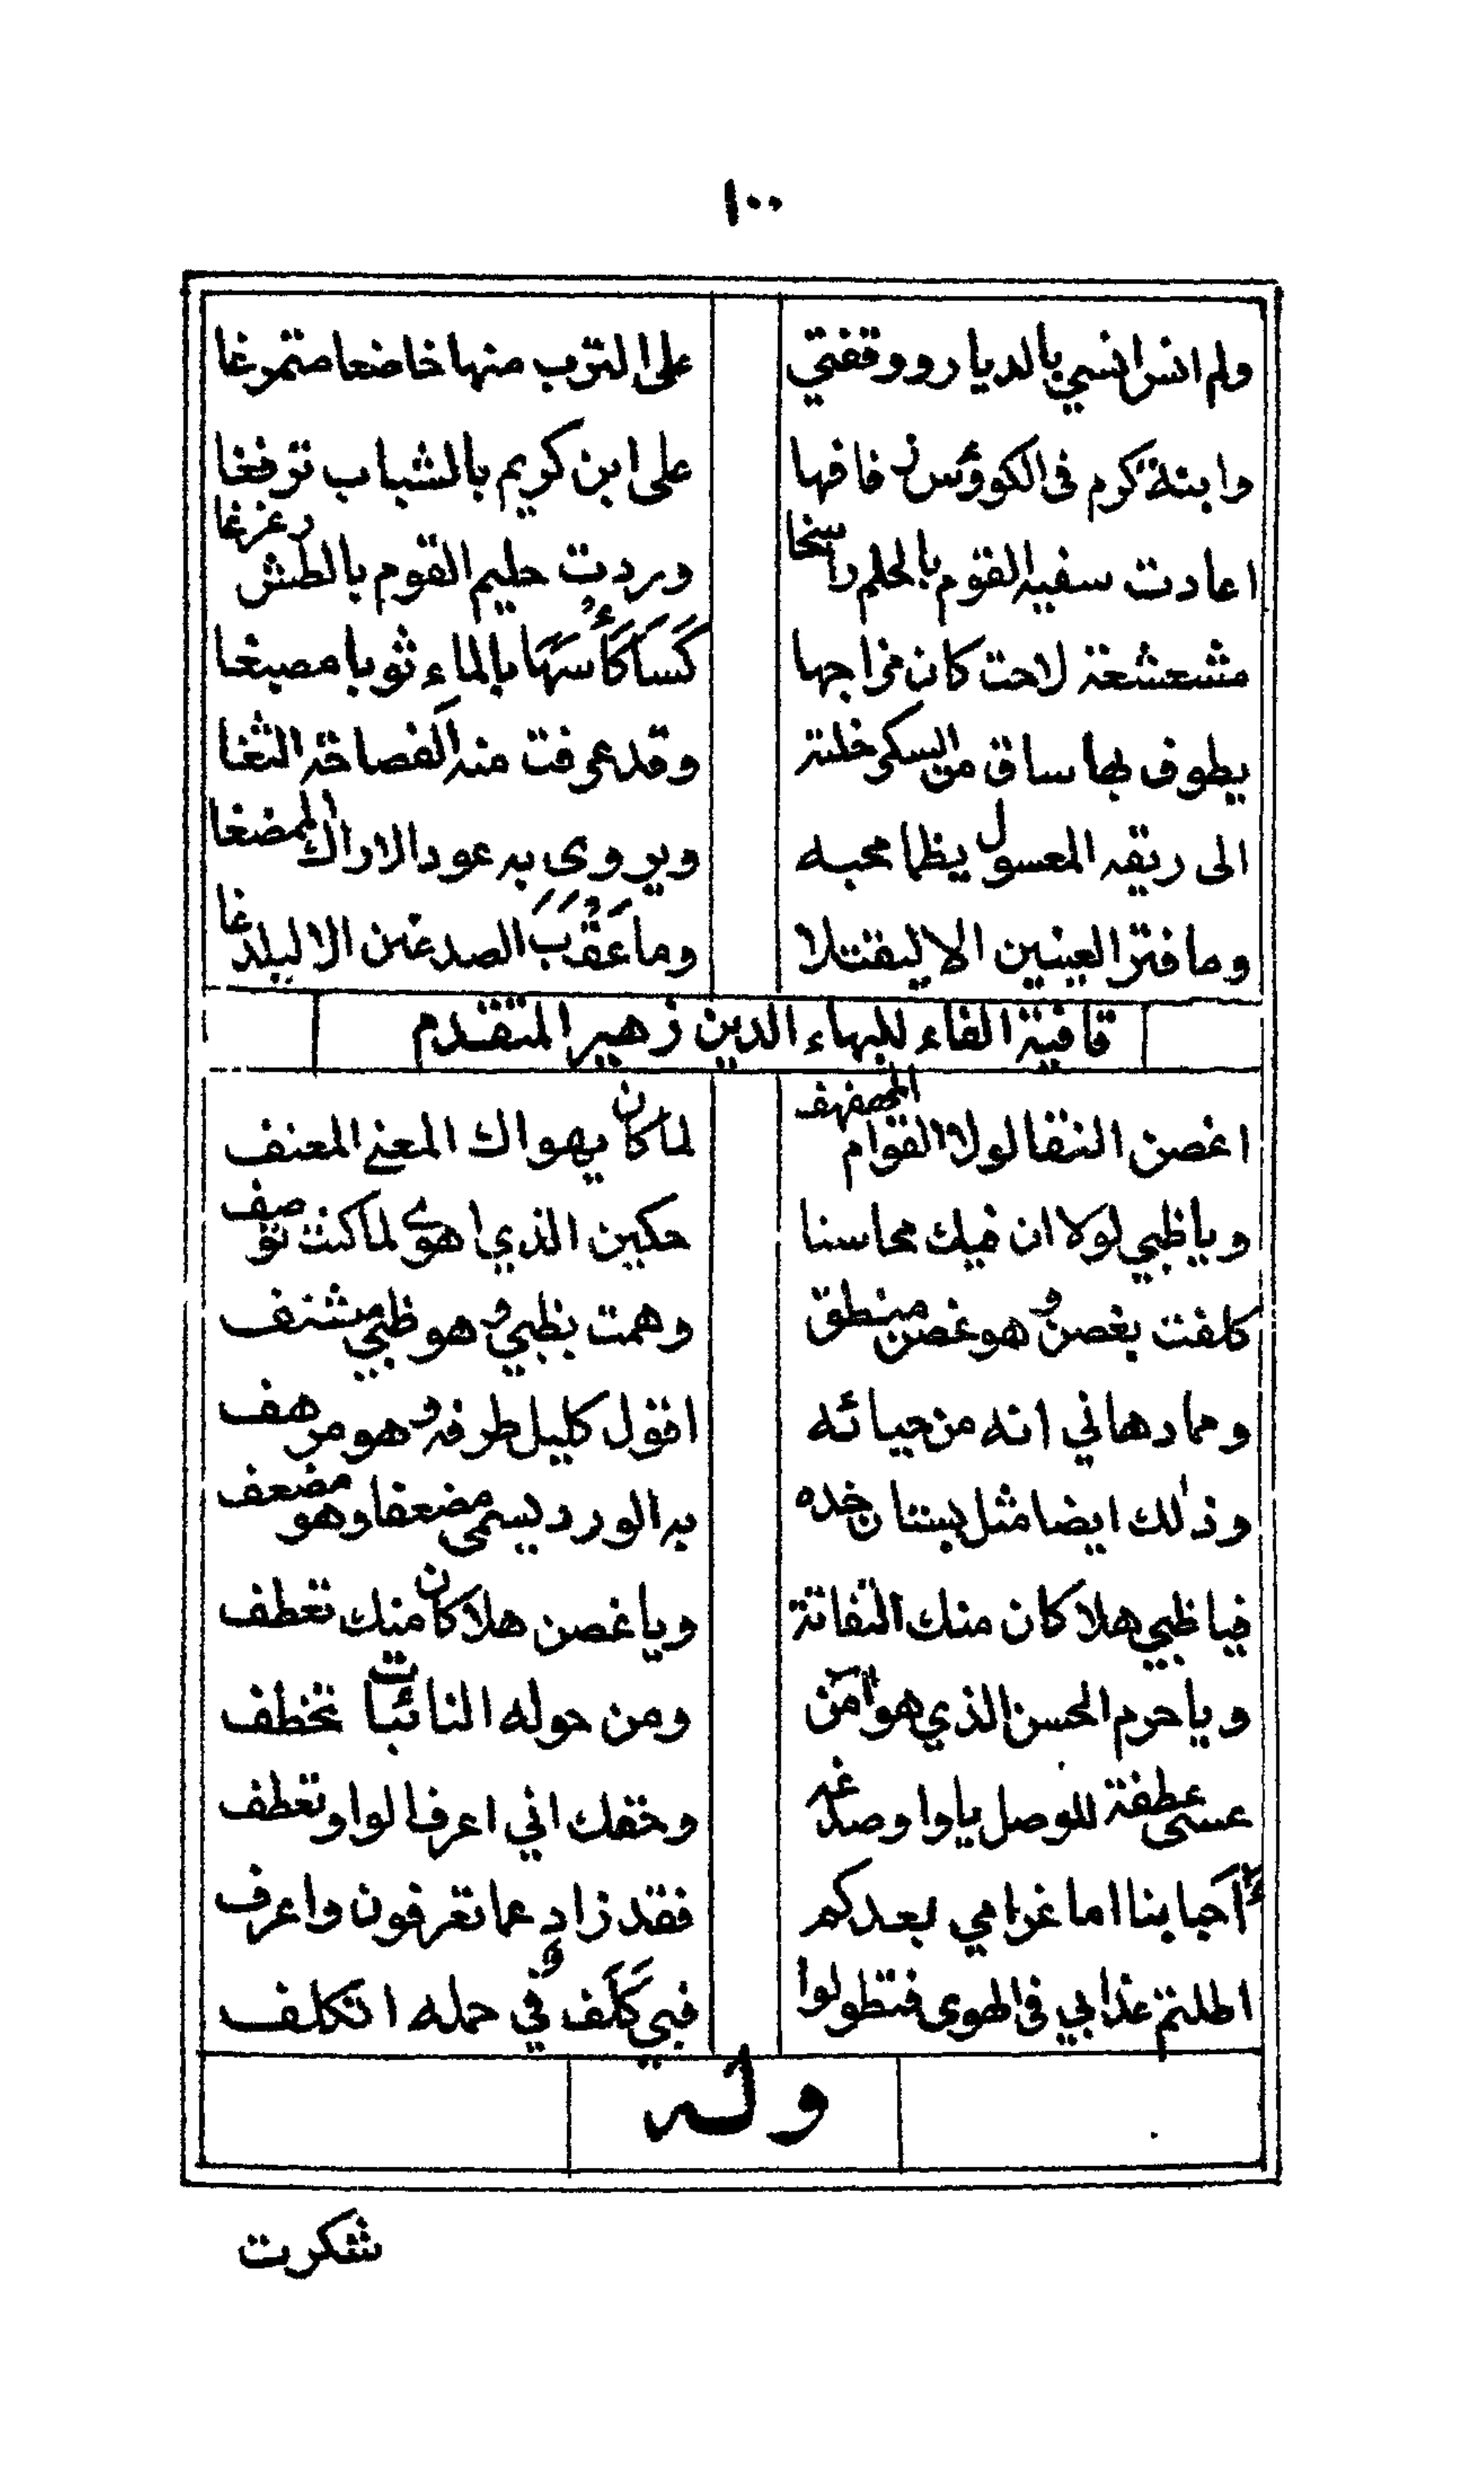 ١٠٠
ولم انس انسي بالديار ووقفتي على الترب منها خاضعا متمرغا
وابنة كرم فى الكووس زفافها على ابن كريم بالشباب ترفغا
اعادت سفيه القوم بالحلم راسخا وردت حليم القوم بالطش دغزغا
مشعشعة لاحت كان مزاجها كَسَا كَأسَهَا بالماء ثوبا مصبغا
يطوف بها ساق من السكر خلته وقد عرفت منه الفصاحة الثغا
الى ريقه المعسول يظما محبه ويروى به عود الاراك الممضغا
وما فتر العينين الا ليقتلا وما عَقْرَبَ الصدغين الا ليلدغا
قافية الفاء للبهاء الدين زهير المتقدم
اغصن النقا لولا القوام المهفهف لما كان يهواك المعنى المعنف
وياظبي لولا ان فيك محاسنا حكين الذي اهوى لما كنت توصف
كلفت بغصن وهو غصن منطق وهمت بظبي وهو ظبي مشنف
ومما دهاني انه من حيائه اقول كليل طرفه وهو مرهف
وذلك ايضا مثل بستان خده به الورد يسمى مضعفا وهو مضعف
فيا ظبي هلا كان منك التفاتة ويا غصن هلا كان منك تعطف
ويا حرم الحسن الذي هو آمن ومن حوله النائبات تخطف
عسى عطفة للوصل ياواو صدغه وحقك اني اعرف الواو تعطف
أاحبابنا اما غرامي بعدكم فقد زاد عما تعرفون واعرف
اطلتم عذابي فى الهوى فتطولوا فبي كَلَف في حمله اتكلف
وله
شكرت